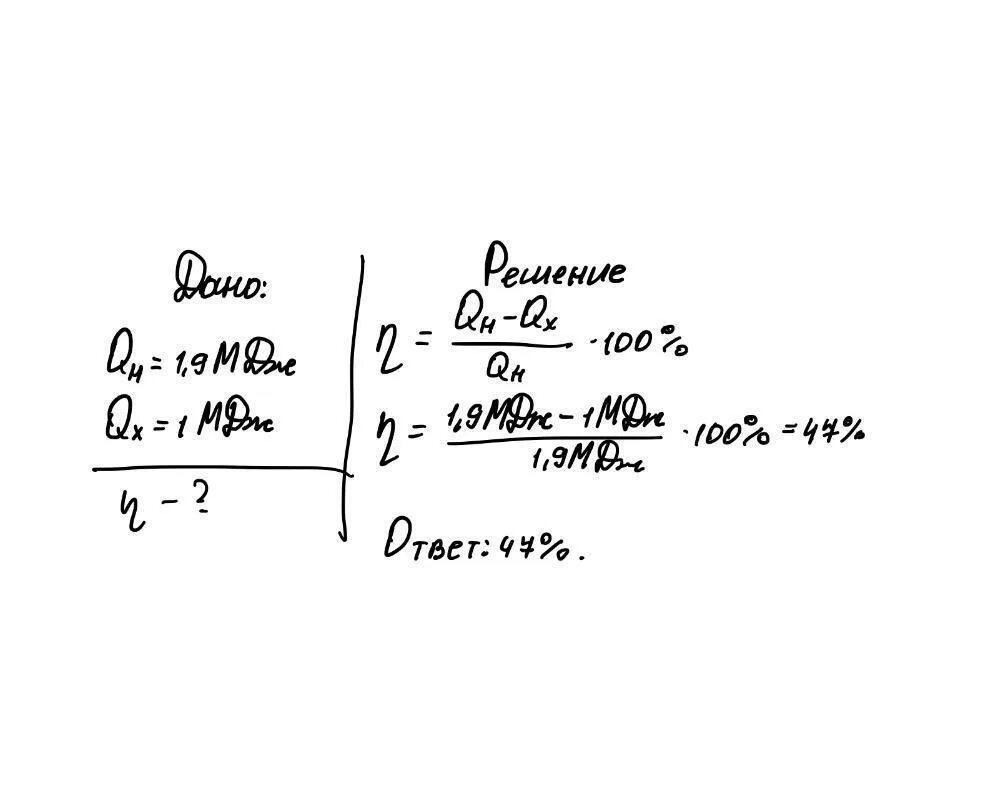 Дано:
Qн = 1,9 МДж
Qх = 1 МДж
η - ?
Решение
η = (Qн - Qх) / Qн · 100%
η = (1,9 МДж - 1 МДж) / 1,9 МДж · 100% = 47%
Ответ: 47%.